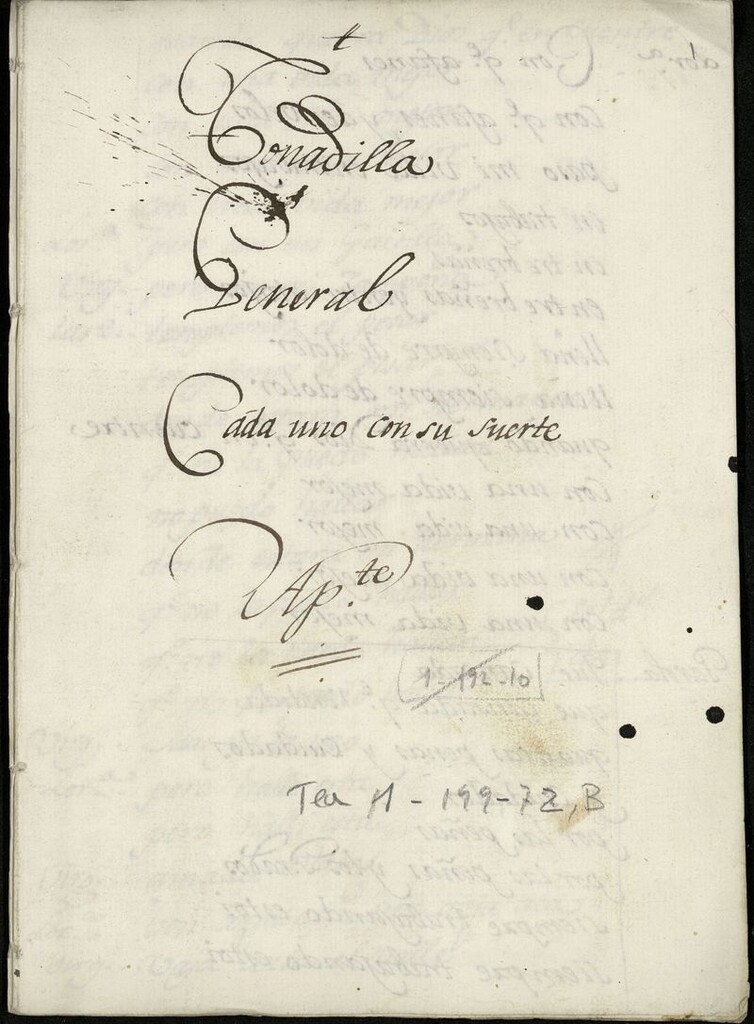 Tonadilla
General
Cada uno con su suerte
Ap.te
1-192-10
Tea 1-199-72, B